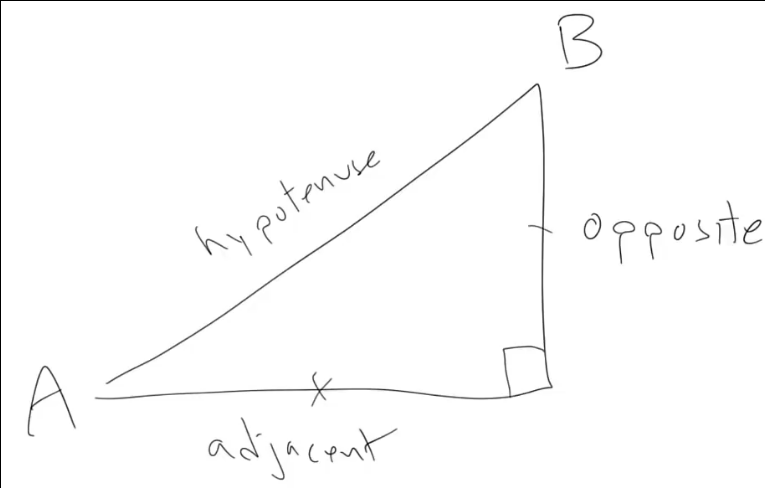 B
hypotenuse
opposite
A
adjacent